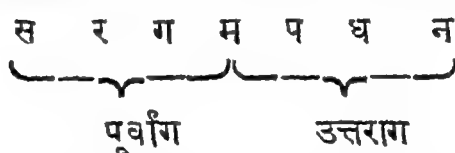 स र ग म प ध न
पूर्वांग उत्तराग